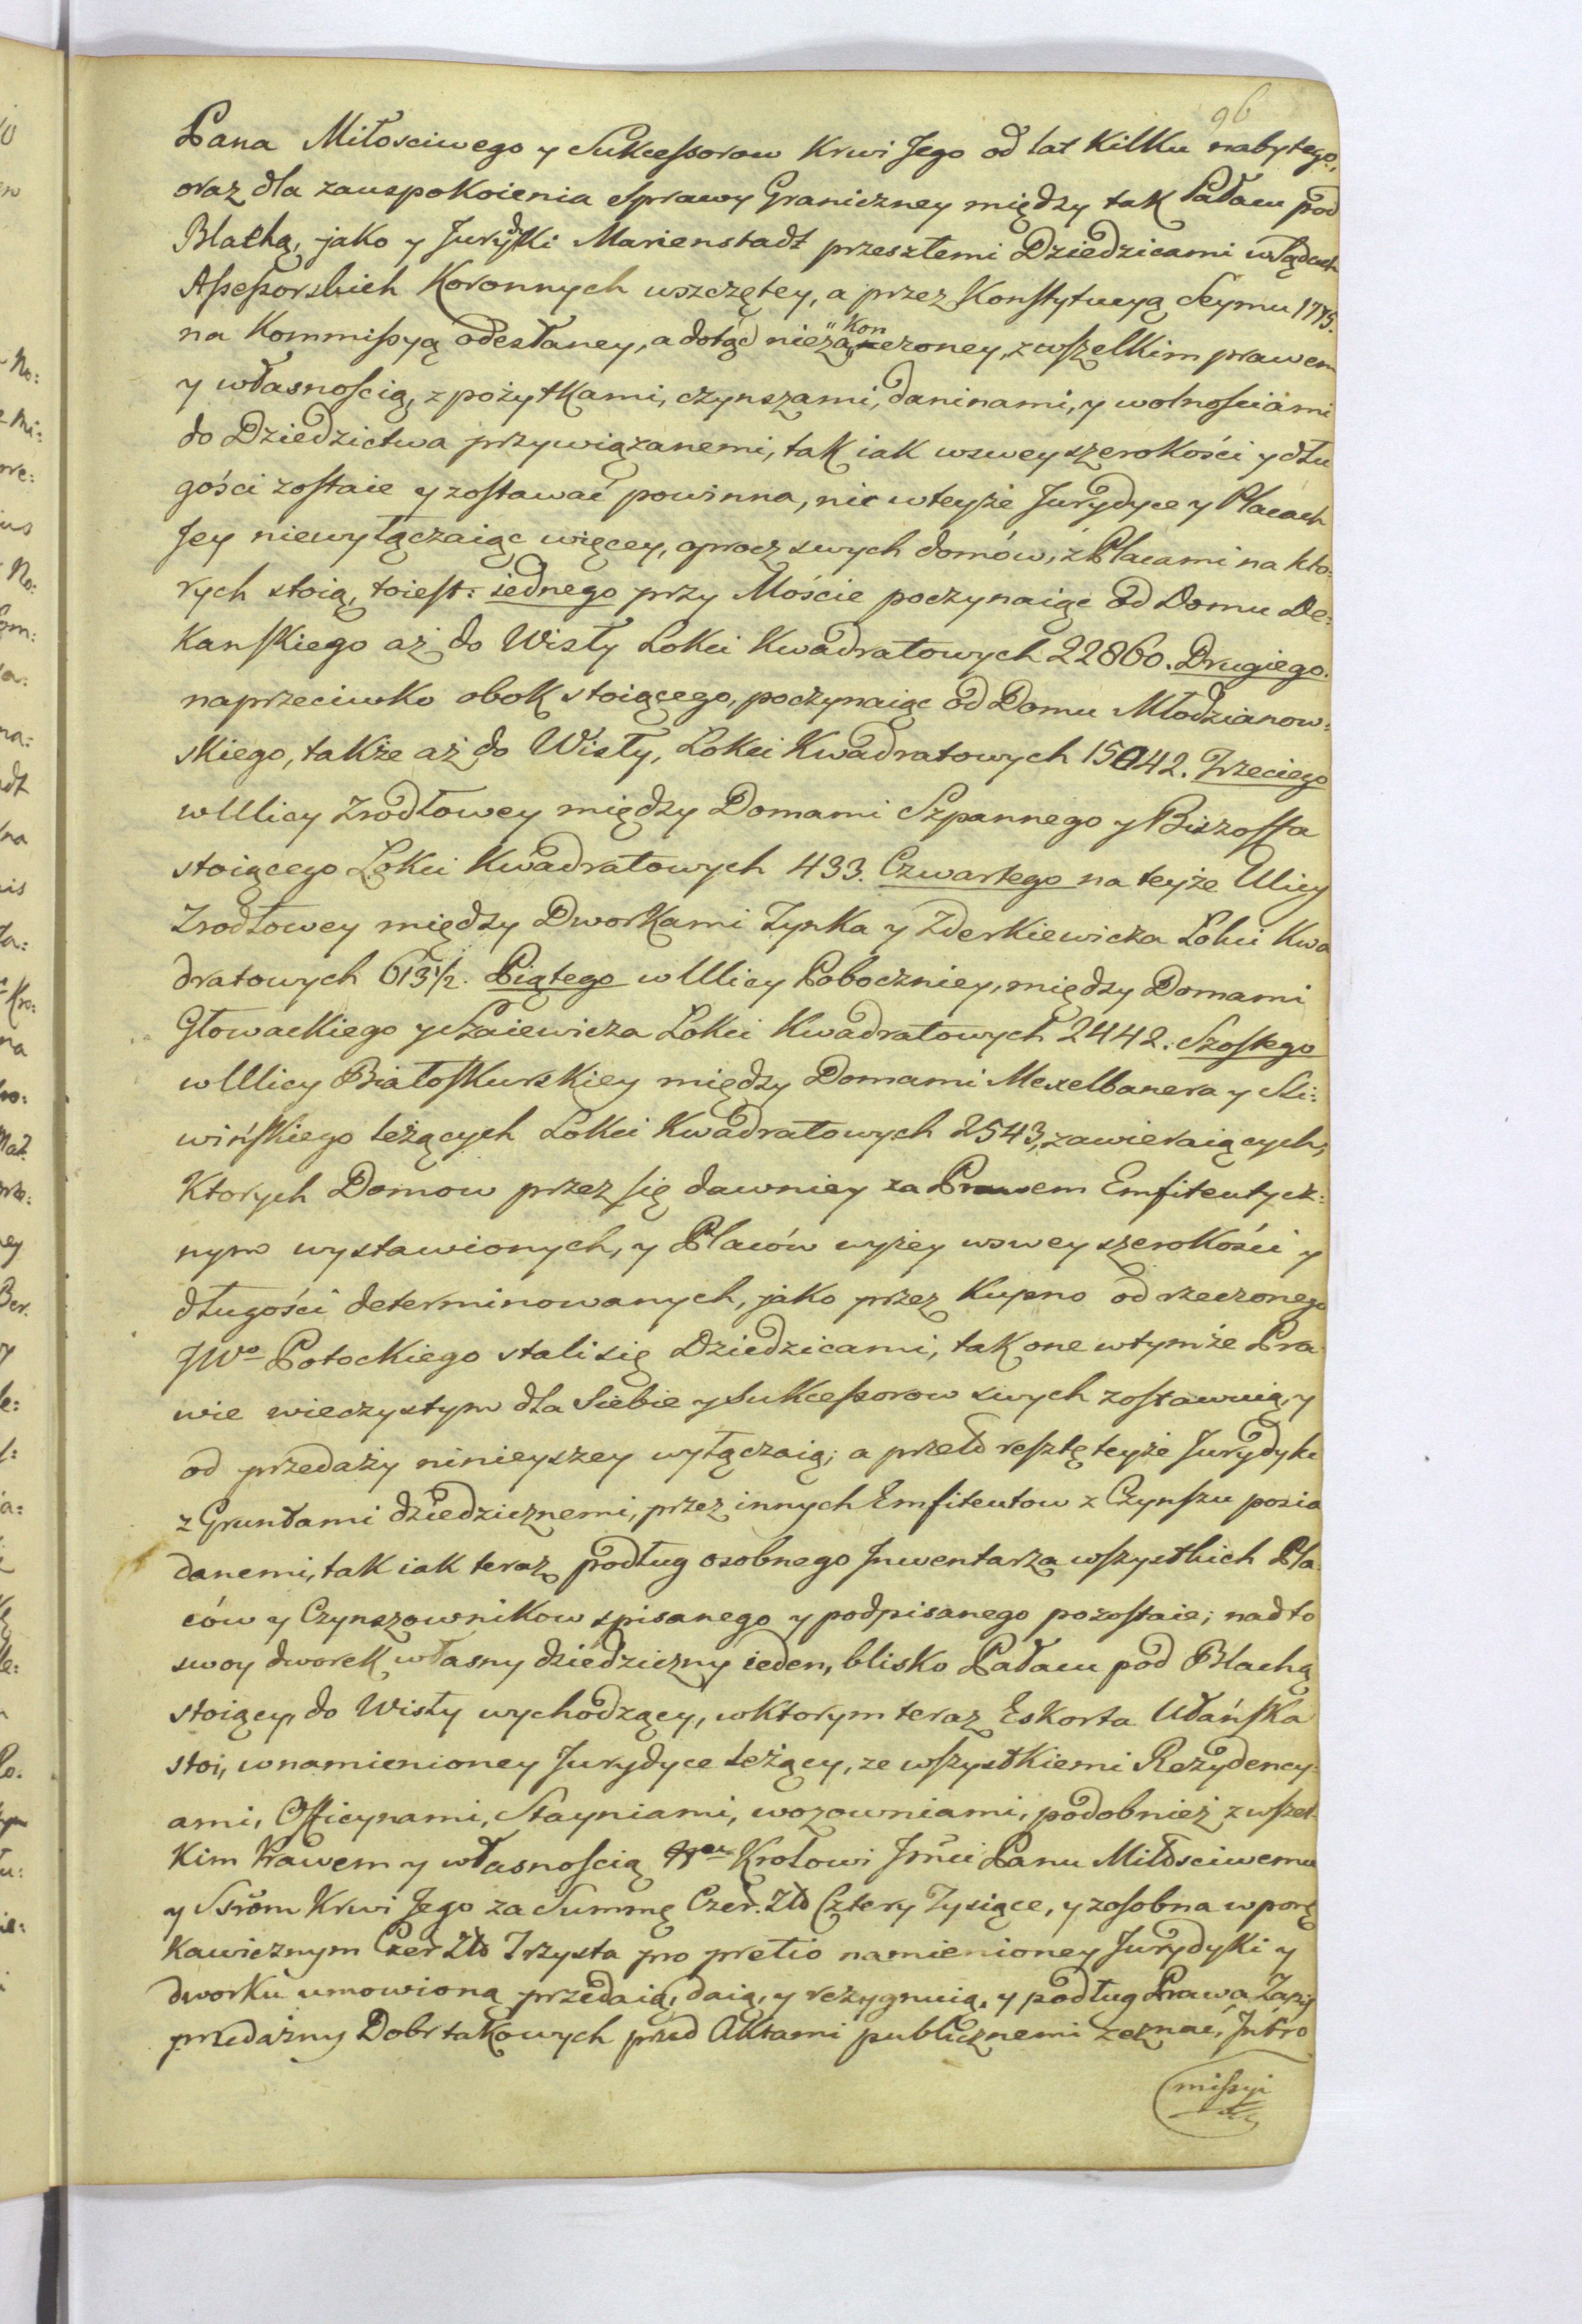 96
Pana Miłosciwego y Sukcessorow Krwi Jego od lat Kilku nabytego,
oraz dla zauspokoienia Sprawy Graniczney między tak Pałacu pod
Blachą, jako y Jurydyki Marienstadt przeszłemi Dziedzicami w Sądach
Assessorskich Koronnych wszczętey, a przez Konstytucyą Seymu 1775.
na Kommissyą odesłaney, a dotąd niezakonczoney, z wszelkim prawem
y własnością, z pożytkami, czynszami, daninami, y wolnościami
do Dziedzictwa przywiązanemi, tak iak wswey szerokości y dłu
gości zostaie y zostawać powinna, nic wteyże Jurydyce y Placach
Jey niewyłączaiąc więcey, oprocz swych domów, z Placami na kto:
rych stoią, toiest: iednego przy Moście poczynaiąc od Domu De:
Kanskiego aż do Wisły Łokci Kwadratowych 22860. Drugiego.
naprzeciwko obok stoiącego, poczynaiąc od Domu Młodzianow:
skiego, także aż do Wisły, Łokci Kwadratowych 15042. Trzeciego
w Ulicy Zrodłowey między Domami Szpannego y Biszoffa
stoiącego Łokci Kwadratowych 433. Czwartego na teyże Ulicy
Zrodłowey między Dworkami Zynka y Zderkiewicza Łokci Kwa
dratowych 613 1/2. Piątego w Ulicy Poboczniey, między Domami
Głowackiego y Szaiewicza Łokci Kwadratowych 2442. Szostego
w Ulicy Białoskurskiey między Domami Mexelbanera y Sli:
wińskiego leżących Łokci Kwadratowych 2543, zawieraiących,
Ktorych Domow przez się dawniey za Prawem Emfiteutycz:
nym wystawionych, y Placów wyżey wswey szerokości y
długości determinowanych, jako przez Kupno od rzeczonego
JWo Potockiego stali się Dziedzicami, tak one wtymże Pra
wie wieczystym dla Siebie y Sukcessorow swych zostawuią, y
od przedaży ninieyszey wyłączaią; a przeto resztę teyże Jurydyki
z Gruntami dziedzicznemi, przez innych Emfiteutow z Czynszu posia
danemi, tak iak teraz podług osobnego Inwentarza wszystkich Pla
ców y Czynszownikow spisanego y podpisanego pozostaie; nadto
swoy dworek własny dziedziczny ieden, blisko Pałacu pod Blachą
stoiący, do Wisły wychodzący, w ktorym teraz Eskorta Ułańska
stoi, wnamienioney Jurydyce leżący, ze wszystkiemi Rezydency:
ami, Officynami, Stayniami, wozowniami, podobnież z wszel:
Kim Prawem y własnością Krolowi Jmci Panu Miłosciwemu
y Ssrom Krwi Jego za Summę Czer. Zło Cztery Tysiące, y zosobna w porę
Kawicznym Czer Zło Trzysta pro pretio namienioney Jurydyki y
dworku umowioną przedaią, daią, y rezygnuią, y podług Prawa Zapis
przedażny Dobr takowych przed Aktami publicznemi zeznać, Intro
missyi